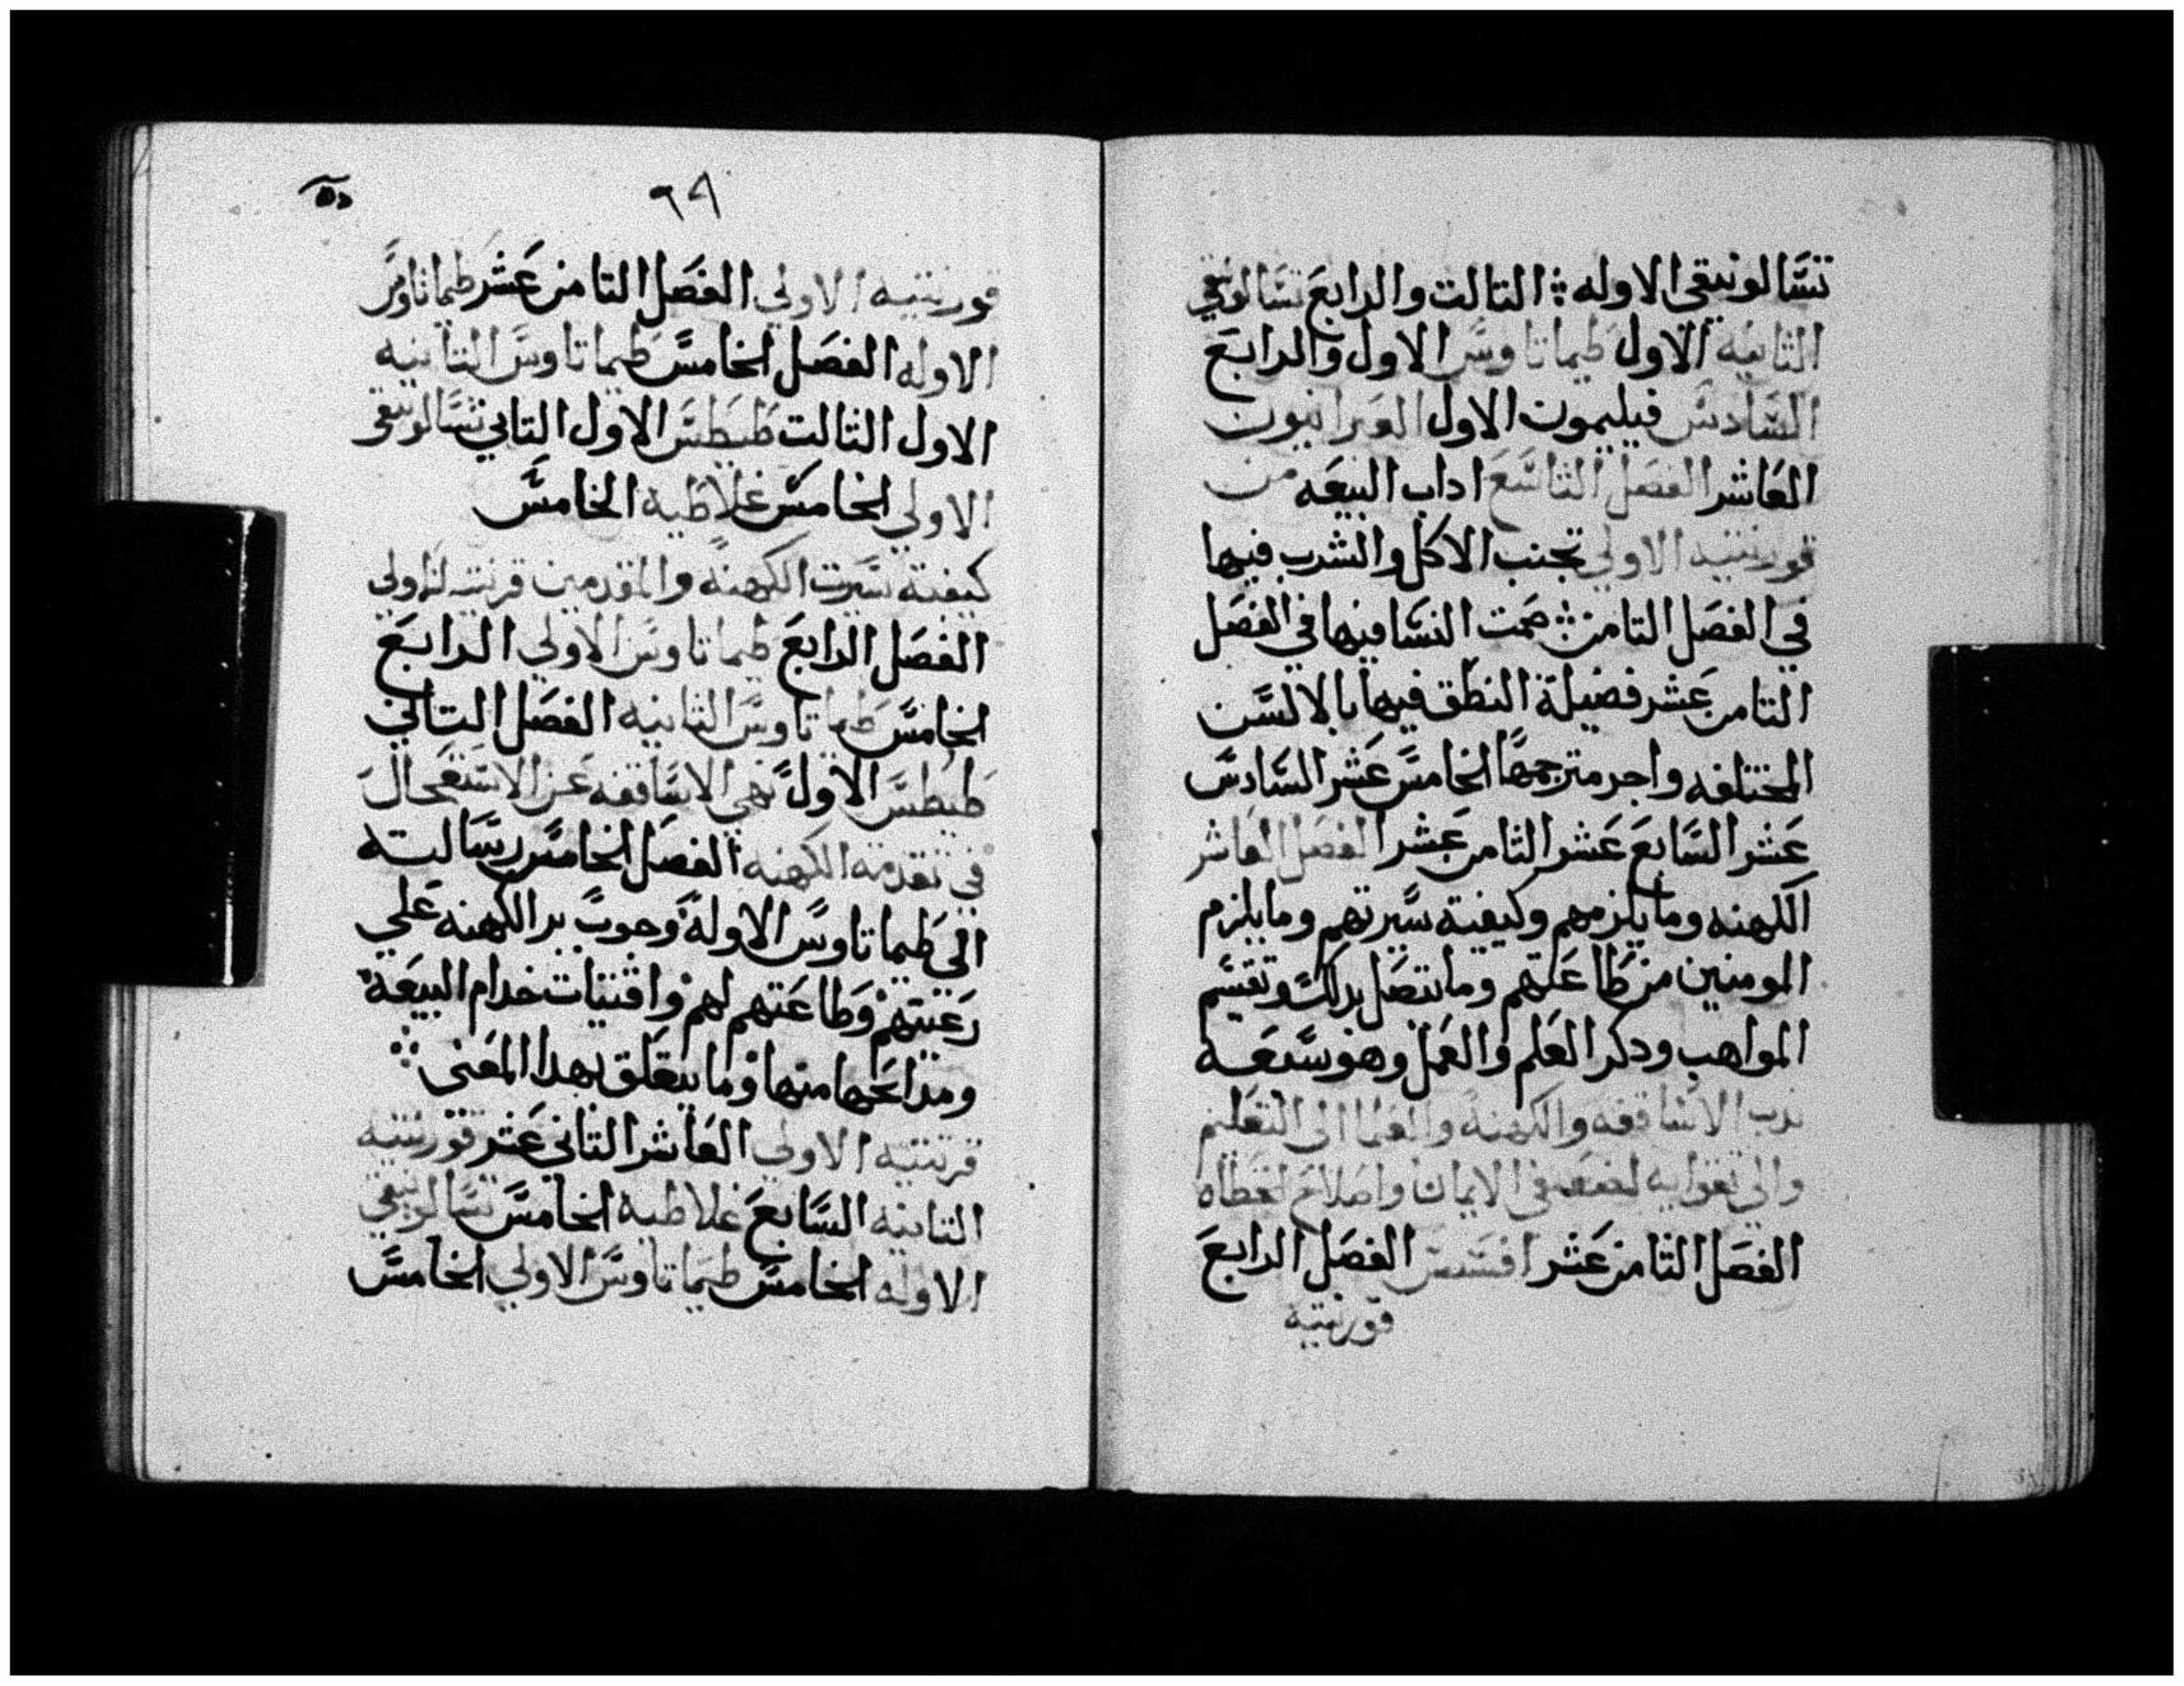 تسالونيقى الاوله ⁘ التالت والرابع تسالونيقى
الثانيه الاول طيماتاوس الاول والرابع
السادس فيليمون الاول العبرانيون
العاشر الفصل التاسع اداب البيعه من
قورنتيه الاولي تجنب الاكل والشرب فيها
في الفصل التامن ⁘ صمت النسا فيها في الفصل
التامن عشر فضيلة النطق فيها بالالسن
المختلفه واجر مترجمها الخامس عشر السادس
عشر السابع عشر الثامن عشر الفصل العاشر
الكهنه وما يلزمهم وكيفية سيرتهم وما يلزم
المومنين من طاعتهم وما يتصل بدلك وتقسيم
المواهب ودكر العلم والعمل وهو سبعه
ندب الاساقفه والكهنه والعلما الى التعليم
والى تقوايه لضعفى الايمان واصلاح الخطاه
الفصل الثامن عشر افسس الفصل الرابع
قورنتيه
٦٩
قورنتيه الاولي الفصل التامن عشر طيماتاوس
الاوله الفصل الخامس طيماتاوس التانيه
الاول التالت طيطس الاول التاني تسالونيقى
الاولي الخامس غلاطيه الخامس
كيفية سيرت الكهنه والمقدمين قرنتيه الاولى
الفصل الرابع طيماتاوس الاولي الرابع
الخامس طيماتاوس التانيه الفصل التاني
طيطس الاول نهي الاساقفه عن الاستعجال
في تقدمة الكهنه الفصل الخامس رسالته
الي طيماتاوس الاوله وجوب بر الكهنه علي
رعيتهم وطاعتهم لهم واقتيات خدام البيعه
ومدابحها منها وما يتعلق بهدا المعنى ⁘
قرنتيه الاولي العاشر التاني عشر قورنتيه
التانيه السابع غلاطيه الخامس تسالونيقي
الاوله الخامس طيماتاوس الاولي الخامس